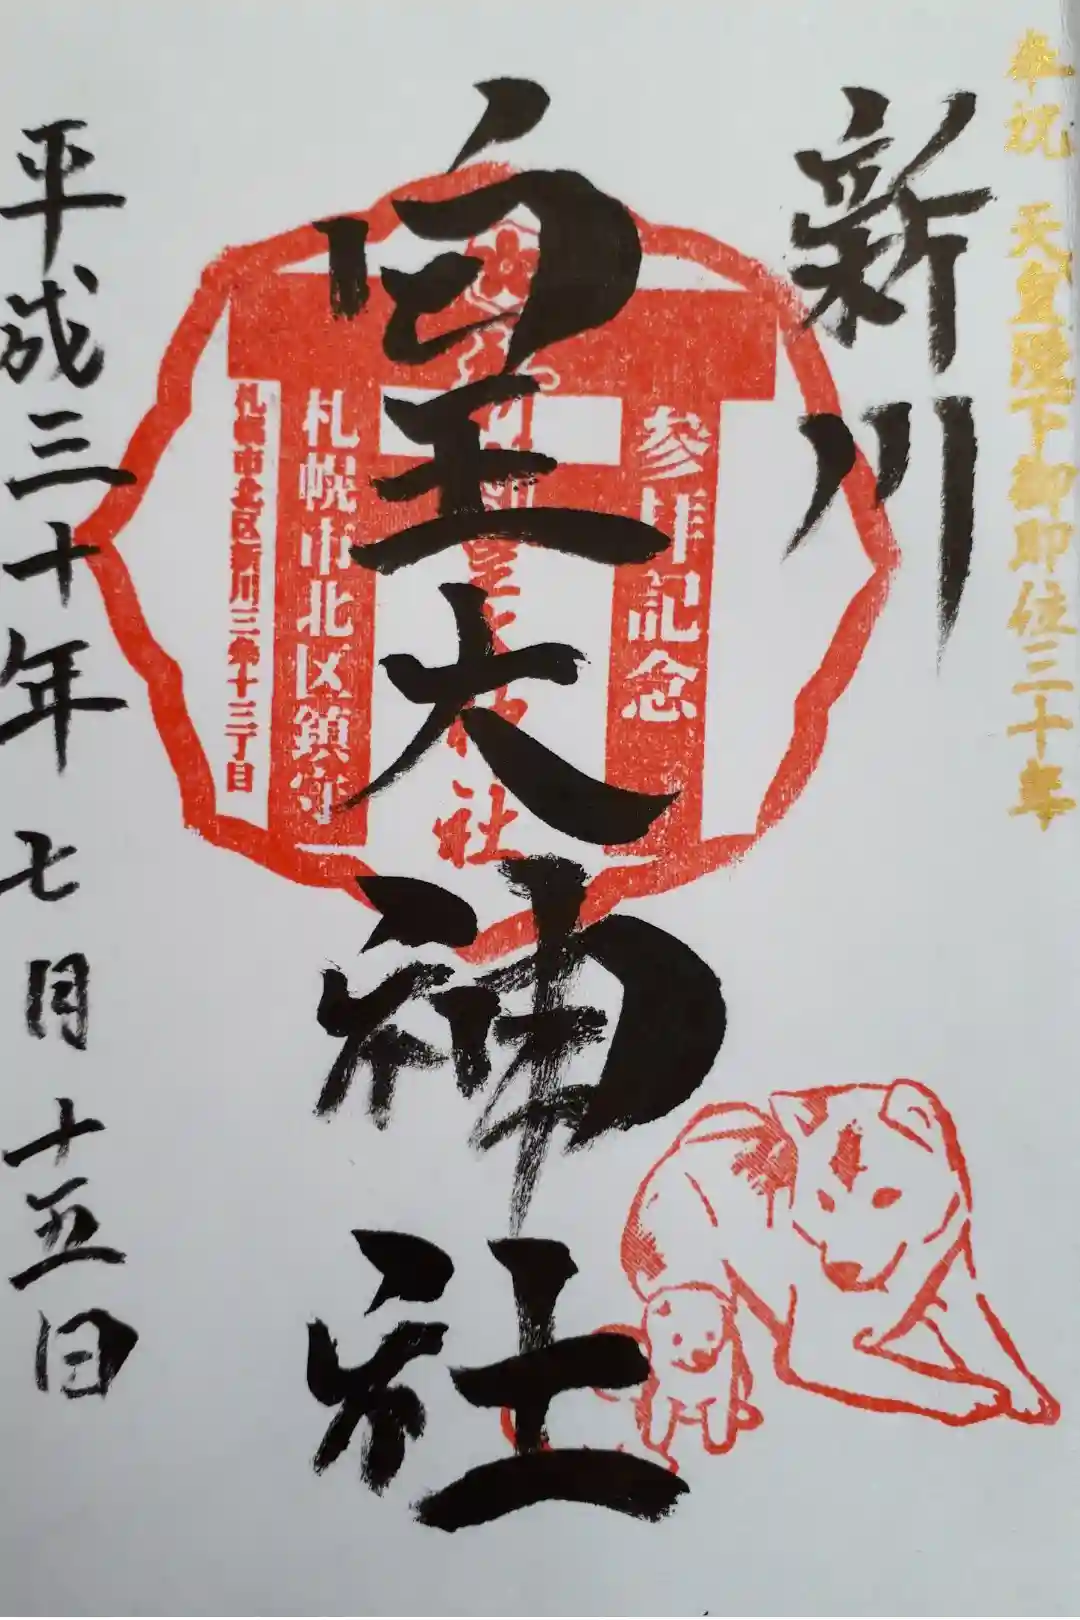 奉祝 天皇陛下御即位三十年
新川
皇大神社
参拝記念
札幌市北区鎮守
札幌市北区新川三条十三丁目
平成三十年 七月十五日